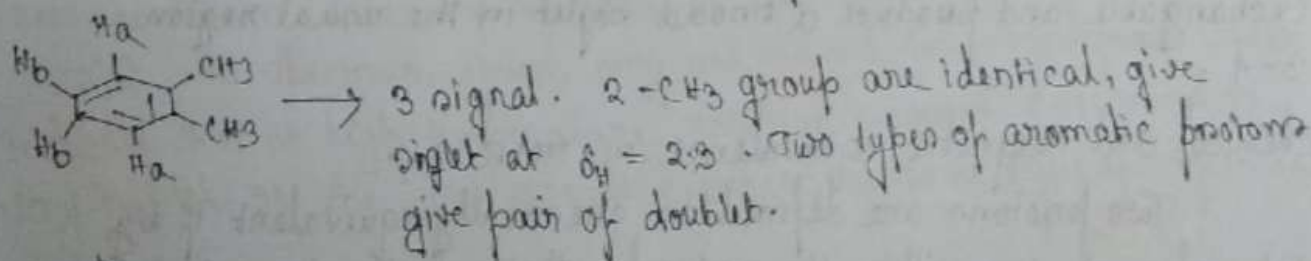 Ha
Hb CH3
→ 3 signal. 2-CH3 group are identical, give
Hb CH3
Ha
siglet at δH = 2.3. Two types of aromatic protons
give pair of doublet.